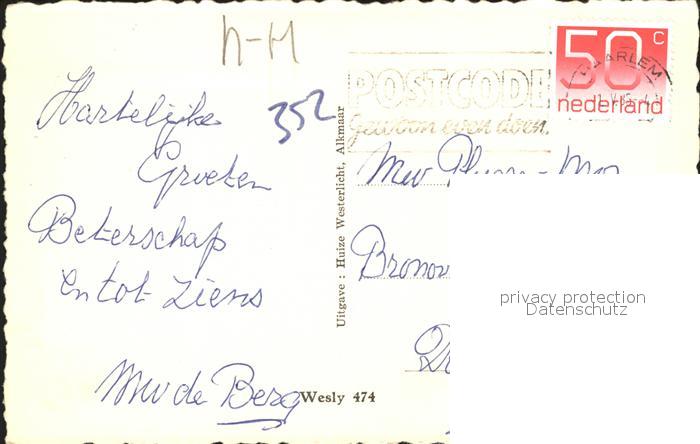 n-H
352
Hartelijke
Groeten
Beterschap
en tot ziens
Mw de Berg
Uitgave : Huize Westerlicht, Alkmaar
Wesly 474
POSTCODE
gewoon even doen.
50 c
nederland
HAARLEM
Mw
privacy protection
Datenschutz